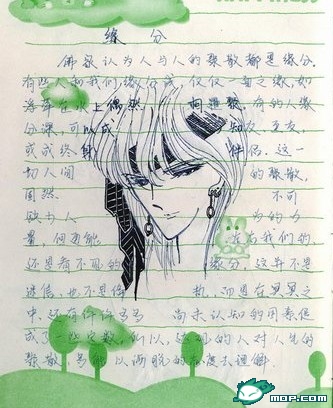 缘 分
佛家认为人与人的聚散都是缘分.
有些人和我们缘分浅,仅仅一面之缘,如
浮萍在水上偶然 相逢 有的人缘
分深,可以成 知交,至友,
或成终身 伴侣.这一
切人间 的聚散,
固然 不可
人为的力
量,但
还是看不见的 缘分,这并不是
迷信,也不是 ,而是在冥冥之
中,还有许许多多 尚未认知的因素促
成了一些定数,所以,达观的人对人生的
聚散,多能以洒脱的态度去理解.
mop.com